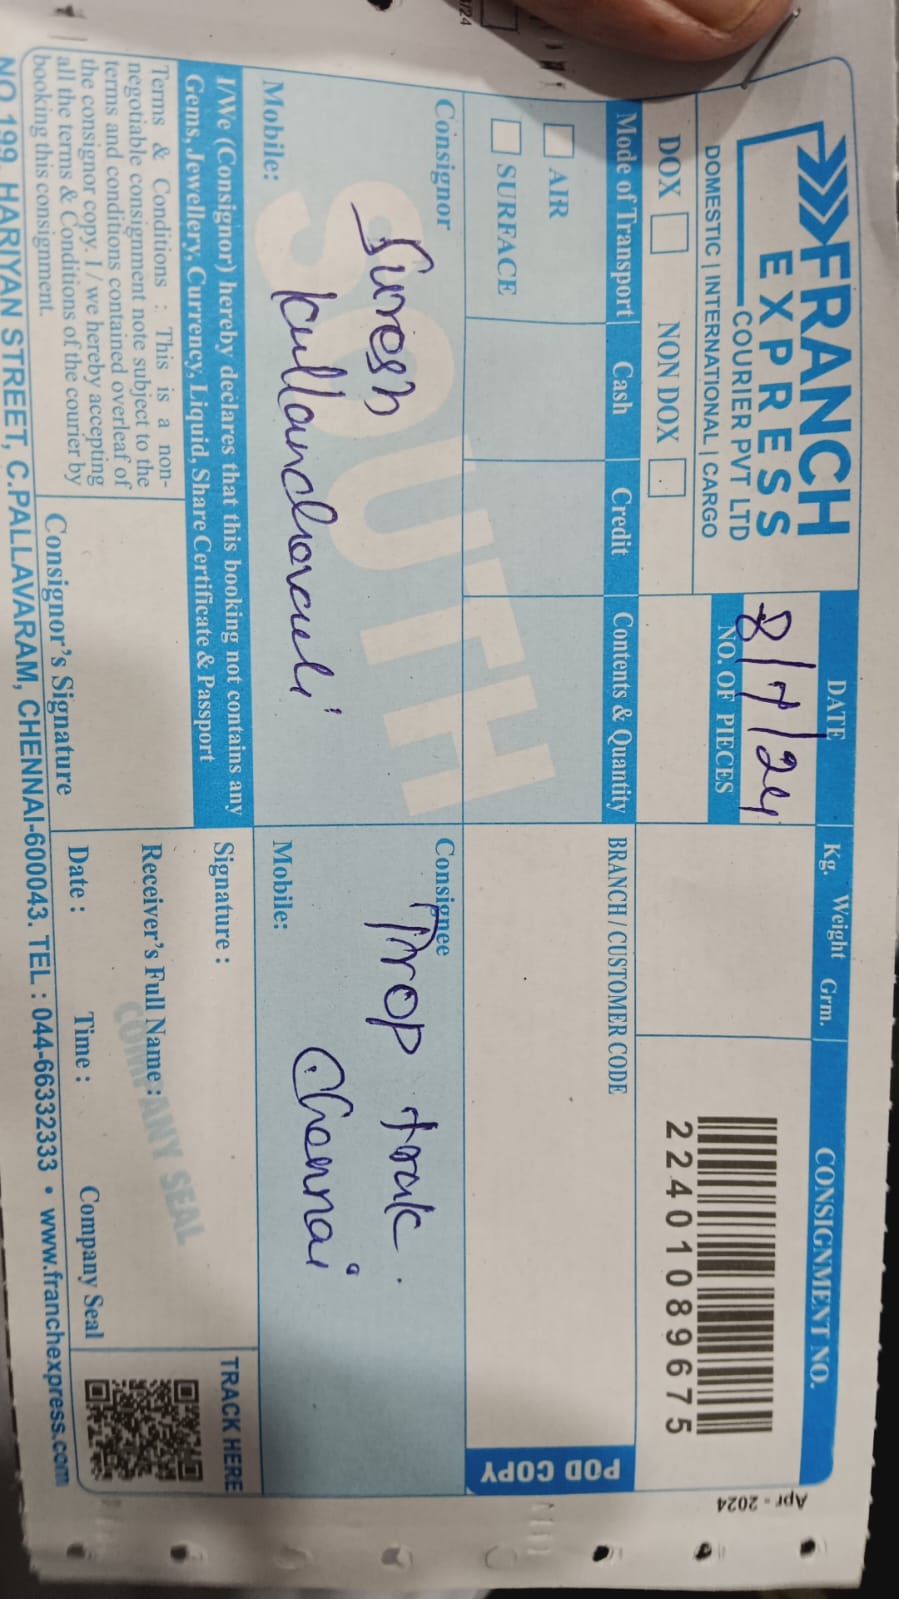 FRANCH
EXPRESS
COURIER PVT LTD
DOMESTIC | INTERNATIONAL | CARGO
DATE
8/7/24
NO. OF PIECES
Weight
Kg. Grm.
CONSIGNMENT NO.
22401089675
DOX NON DOX
Mode of Transport Cash Credit Contents & Quantity
AIR
SURFACE
BRANCH / CUSTOMER CODE
POD COPY
Apr - 2024
SOUTH
Consignor
Suresh
Mobile:
Consignee
Prop
Chennai
Mobile:
I/We (Consignor) hereby declares that this booking not contains any
Gems, Jewellery, Currency, Liquid, Share Certificate & Passport
Terms & Conditions : This is a non-
negotiable consignment note subject to the
terms and conditions contained overleaf of
the consignor copy. I / we hereby accepting
all the terms & Conditions of the courier by
booking this consignment.
Consignor's Signature
Signature :
Receiver's Full Name :
COMPANY SEAL
Date : Time : Company Seal
TRACK HERE
NO.199, HARIYAN STREET, C.PALLAVARAM, CHENNAI-600043. TEL : 044-66332333 • www.franchexpress.com